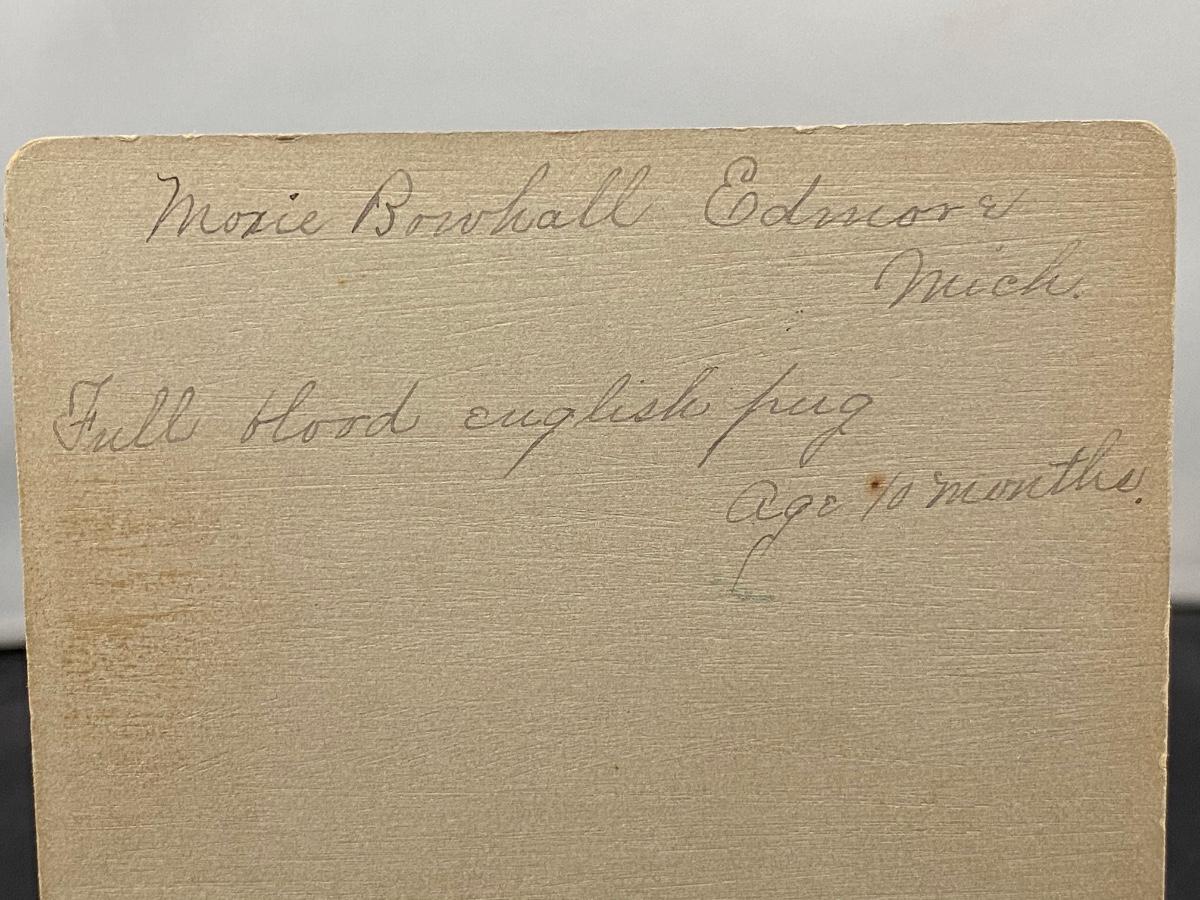 Moxie Bowhall Edmore
Mich.
Full blood english pug
age 10 months.